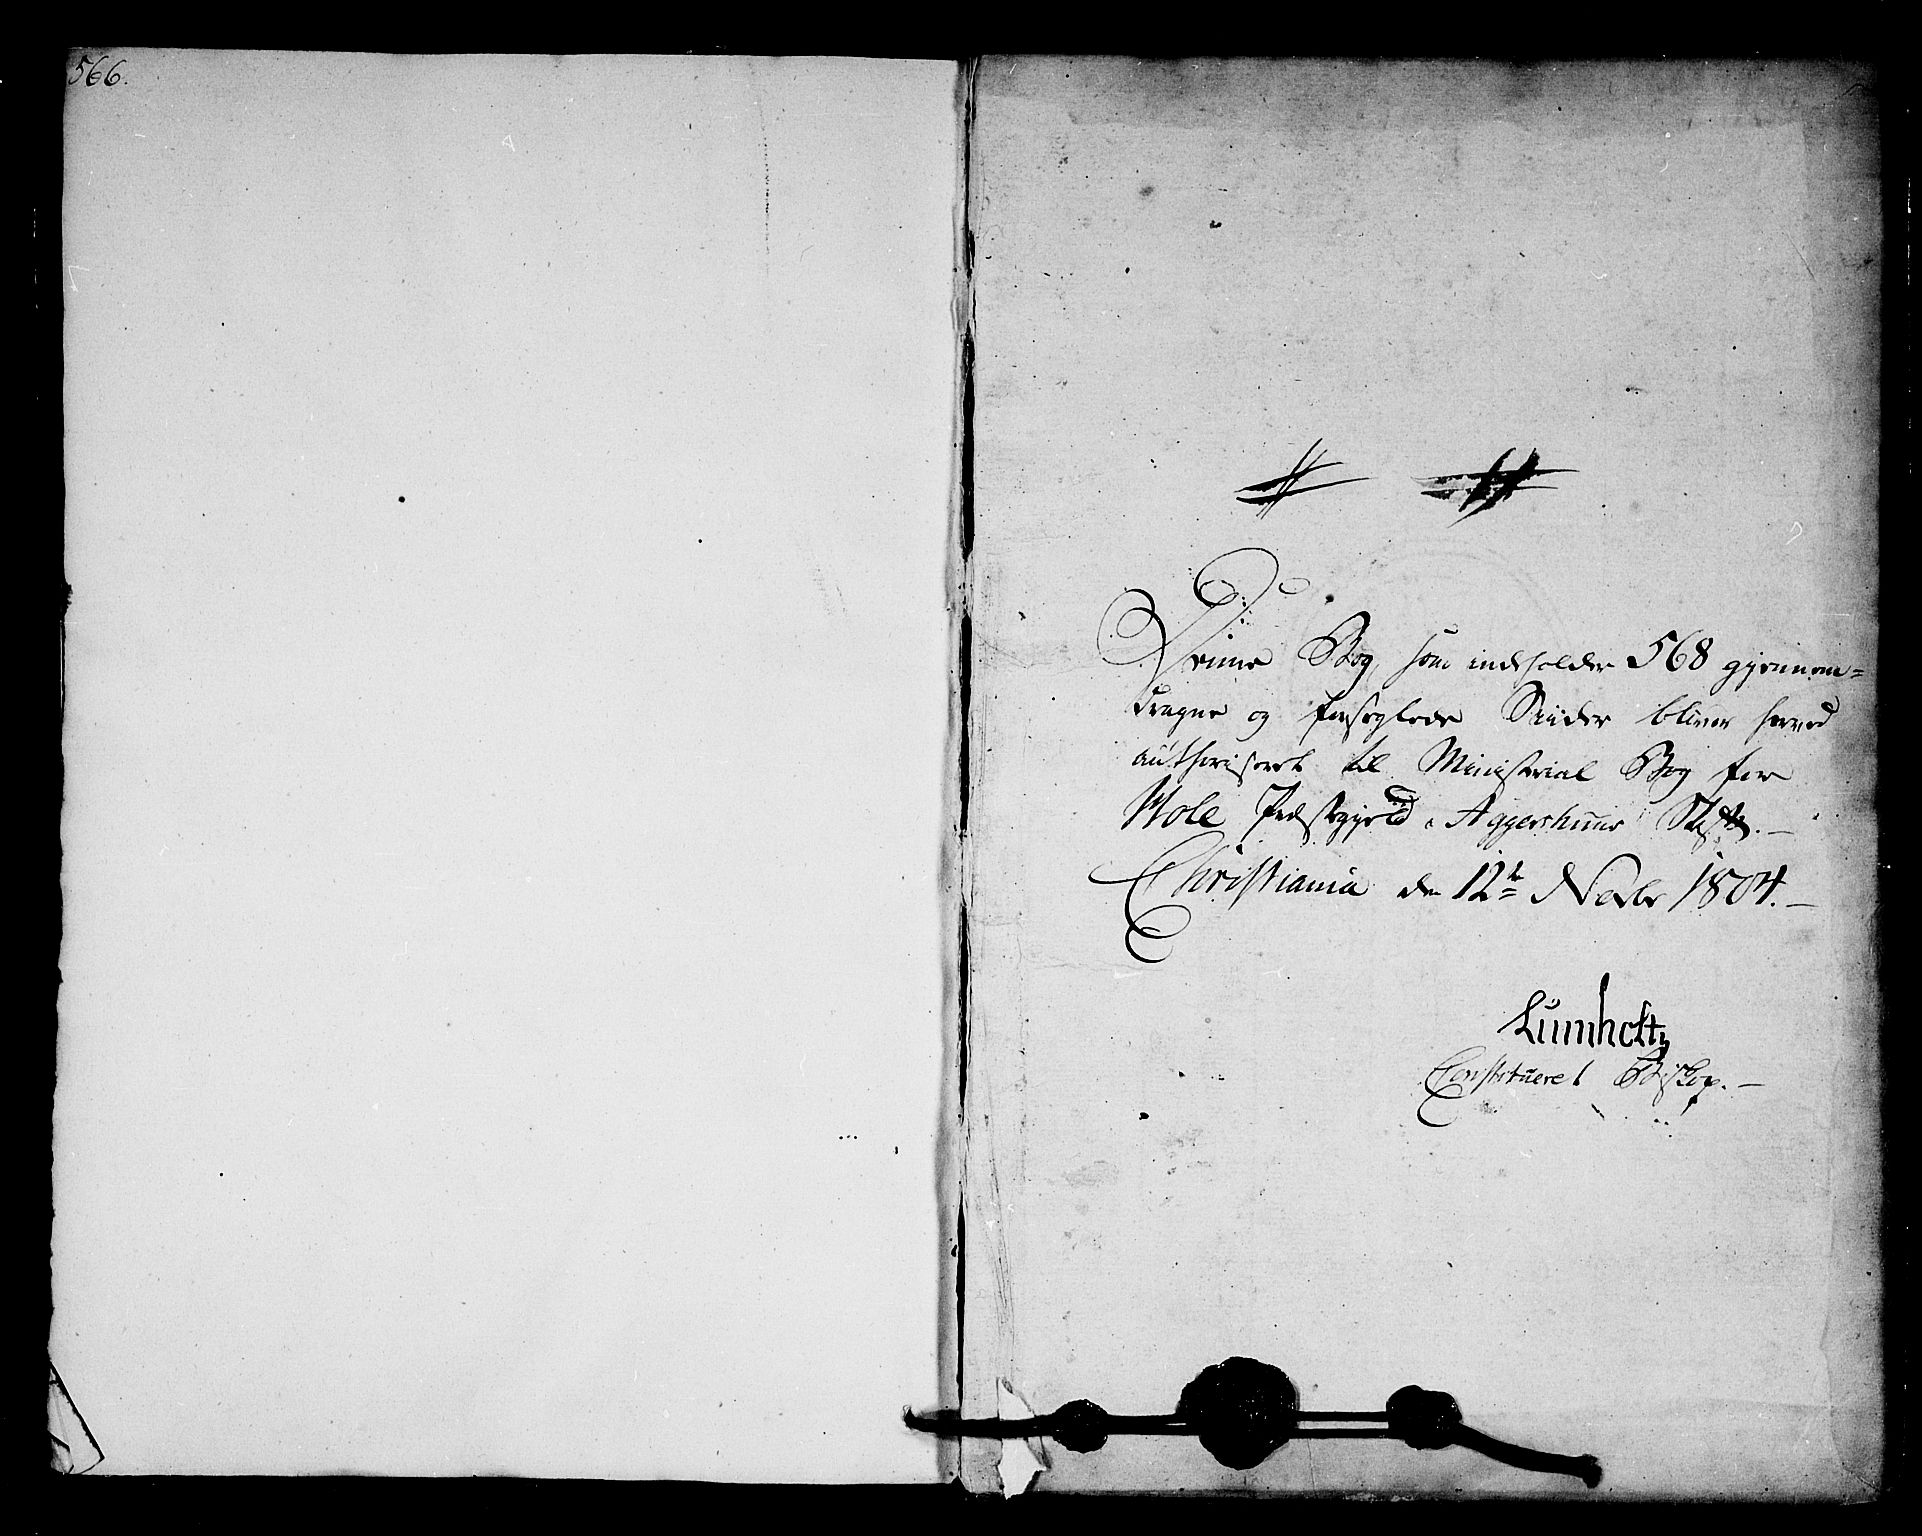 566.
Denne Bog, som indeholder 568 gjennem=
dragne og forseglede Sider bliver herved
authoriseret til Ministerial Bog for
Hole Præstegjeld i Aggershuus Stift. –
Christiania den 12te Novbr 1804. –
Lumholtz
Constitueret Biskop. –